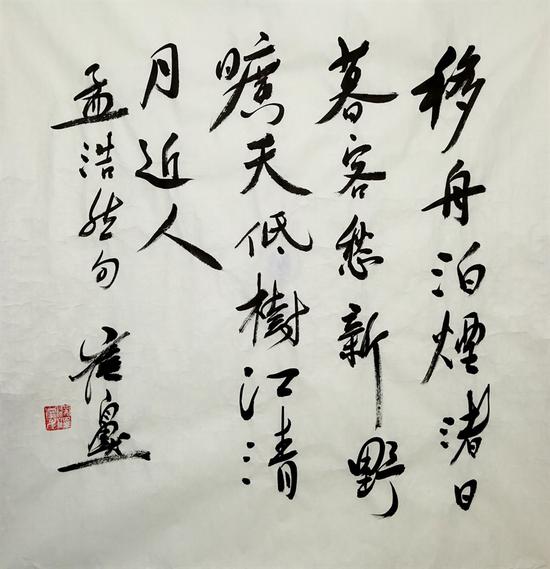 移舟泊煙渚日
暮客愁新野
曠天低樹江清
月近人
孟浩然句